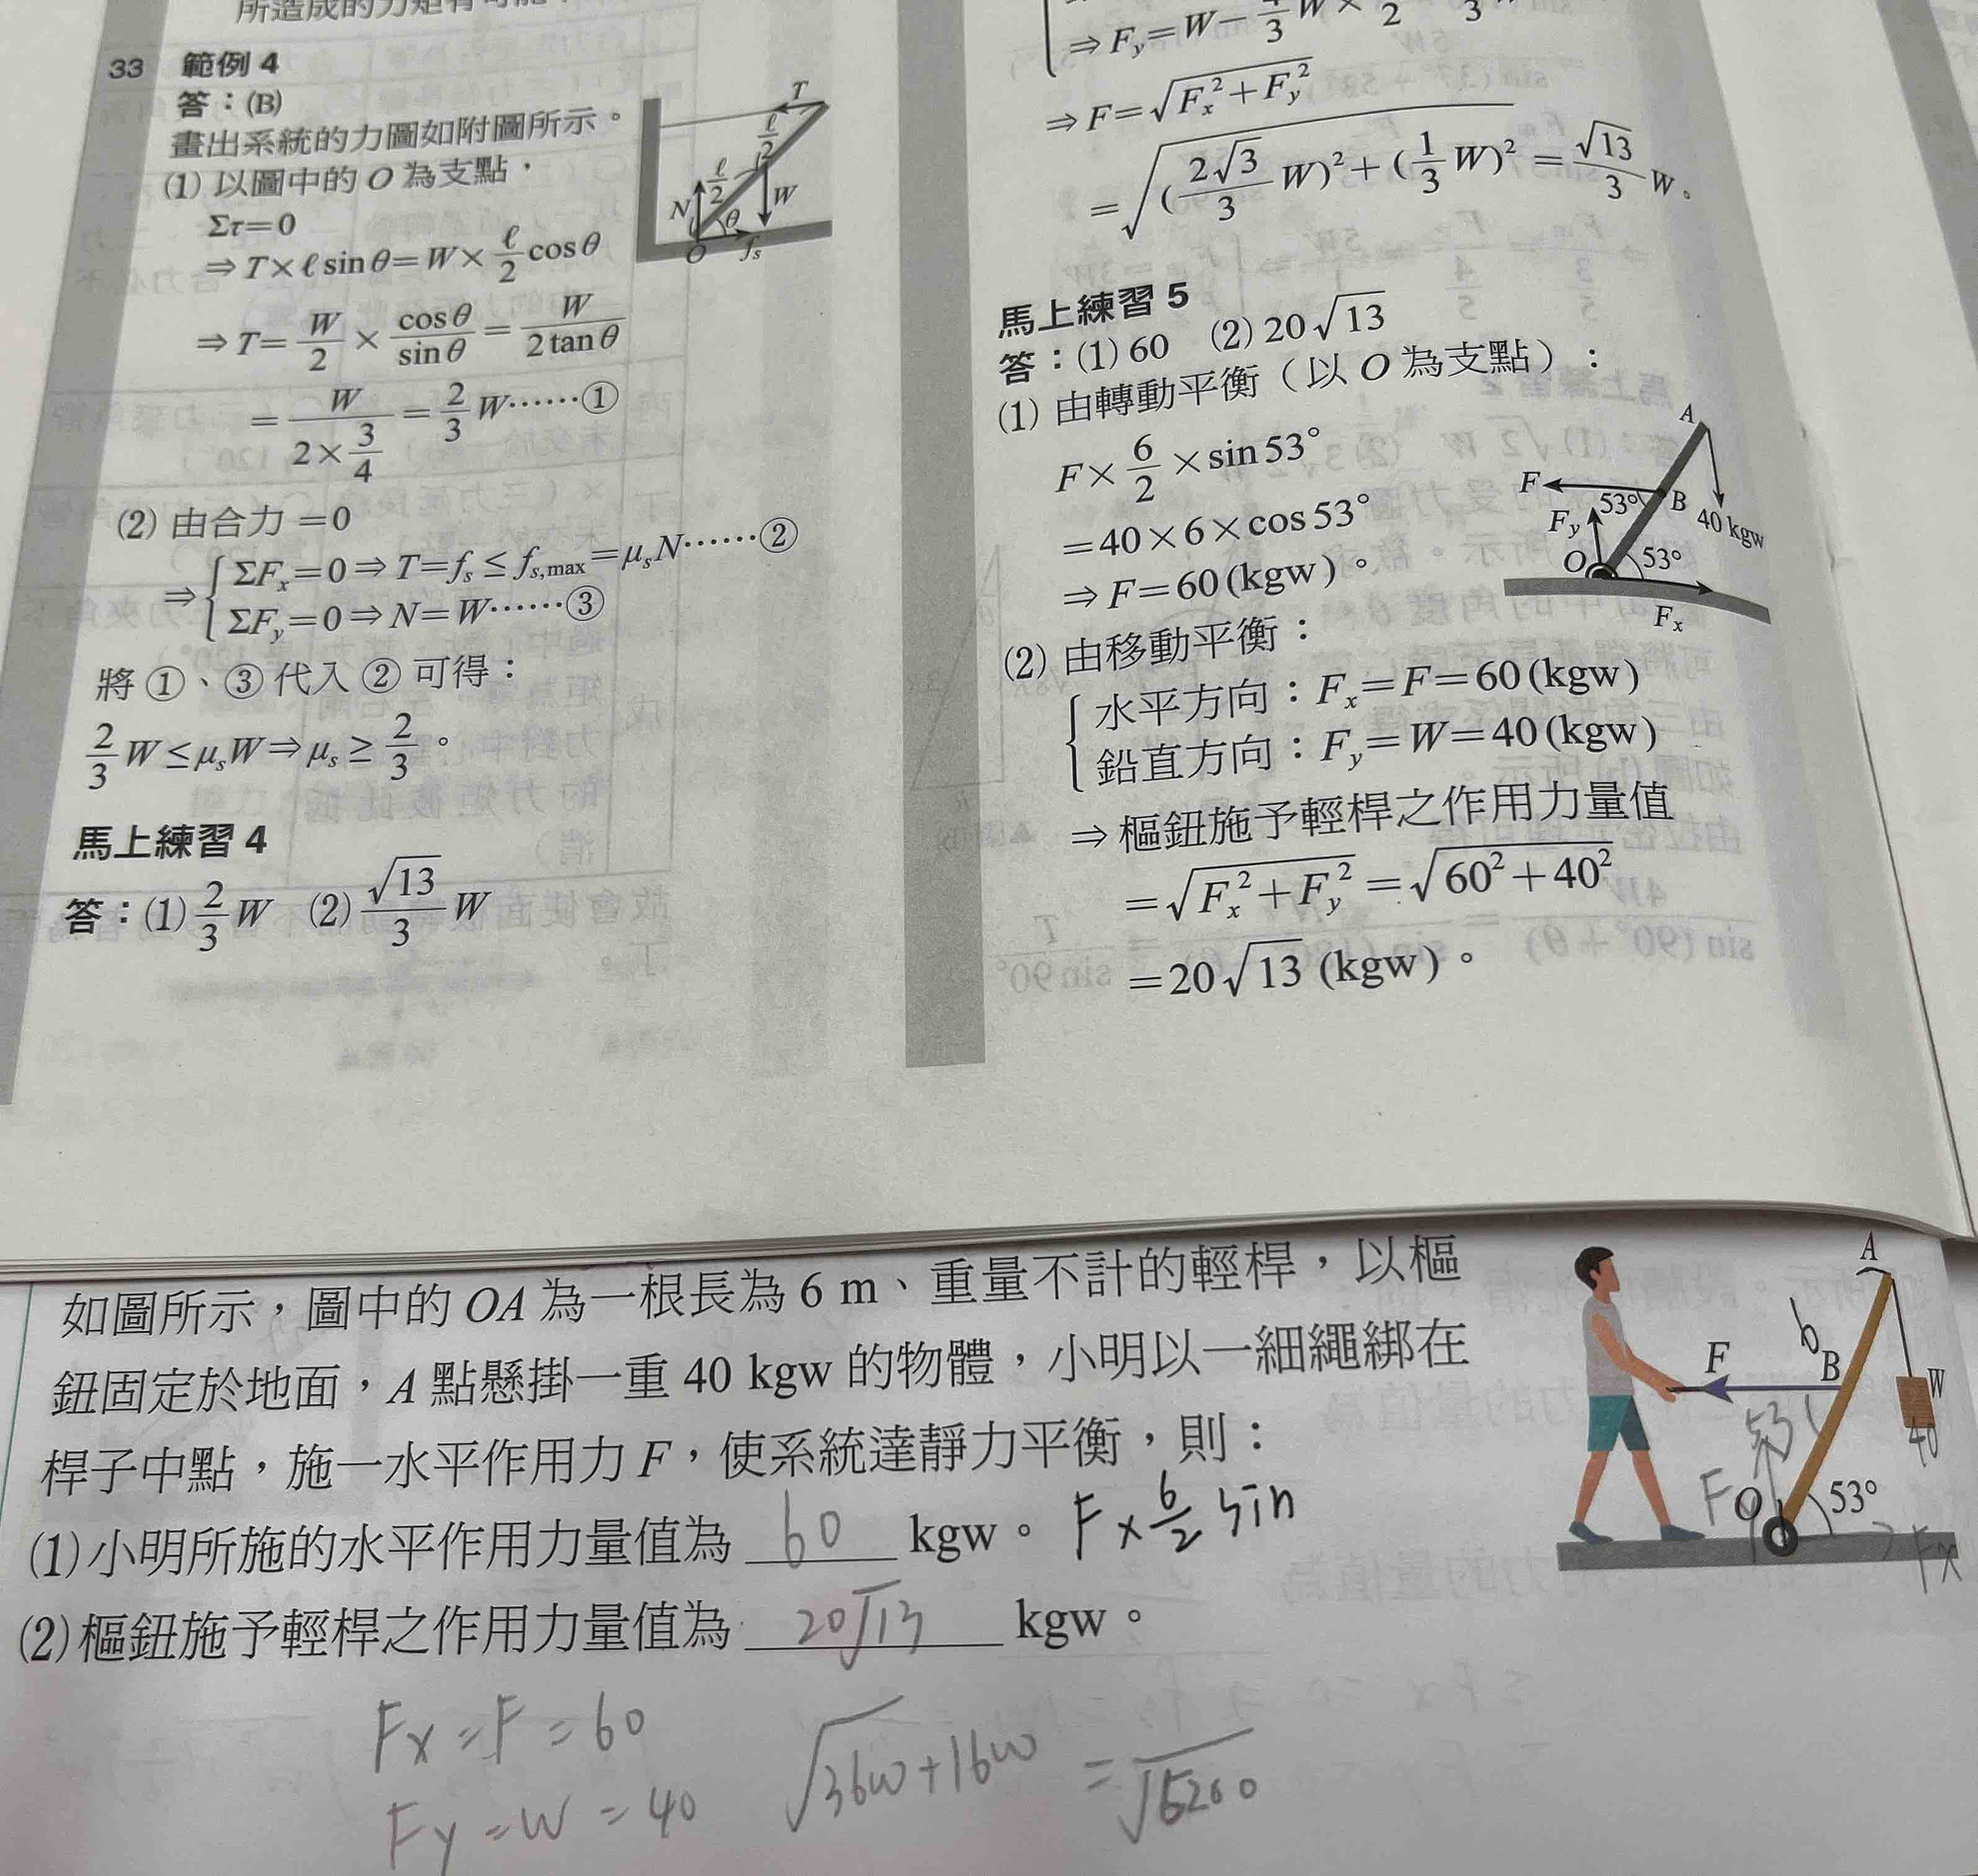 33 範例 4
答：(B)
畫出系統的力圖如附圖所示。
(1) 以圖中的 O 為支點，
Στ=0
⇒ T×ℓ sin θ= W× ℓ/2 cos θ
⇒ T= W/2 × cos θ/sin θ = W/(2 tan θ)
= W/(2× 3/4) = 2/3 W……①
(2) 由合力 =0
⇒ { ΣFx=0 ⇒ T=fs ≤ fs,max=μsN……②
ΣFy=0 ⇒ N=W……③
將 ①、③ 代入 ② 可得：
2/3 W ≤ μsW ⇒ μs ≥ 2/3。
T
ℓ/2
ℓ/2
N
W
θ
O
fs
馬上練習 4
答：(1) 2/3 W (2) √13/3 W
⇒ F=√(Fx²+Fy²)
=√((2√3/3 W)²+(1/3 W)²) = √13/3 W。
馬上練習 5
答：(1) 60 (2) 20√13
(1) 由轉動平衡（以 O 為支點）：
F× 6/2 ×sin 53°
=40×6×cos 53°
⇒ F=60 (kgw)。
A
F
53°
B
40 kgw
Fy
O
53°
Fx
(2) 由移動平衡：
{ 水平方向：Fx=F=60 (kgw)
鉛直方向：Fy=W=40 (kgw)
⇒ 樞鈕施予輕桿之作用力量值
=√(Fx²+Fy²) =√(60²+40²)
=20√13 (kgw)。
如圖所示，圖中的 OA 為一根長為 6 m、重量不計的輕桿，以樞
鈕固定於地面，A 點懸掛一重 40 kgw 的物體，小明以一細繩綁在
桿子中點，施一水平作用力 F，使系統達靜力平衡，則：
(1)小明所施的水平作用力量值為 60 kgw。 F× 6/2 sin
(2)樞鈕施予輕桿之作用力量值為 20√13 kgw。
A
6
F
B
W
53
40
Fy
O
53°
Fx
Fx = F = 60
Fy = W = 40